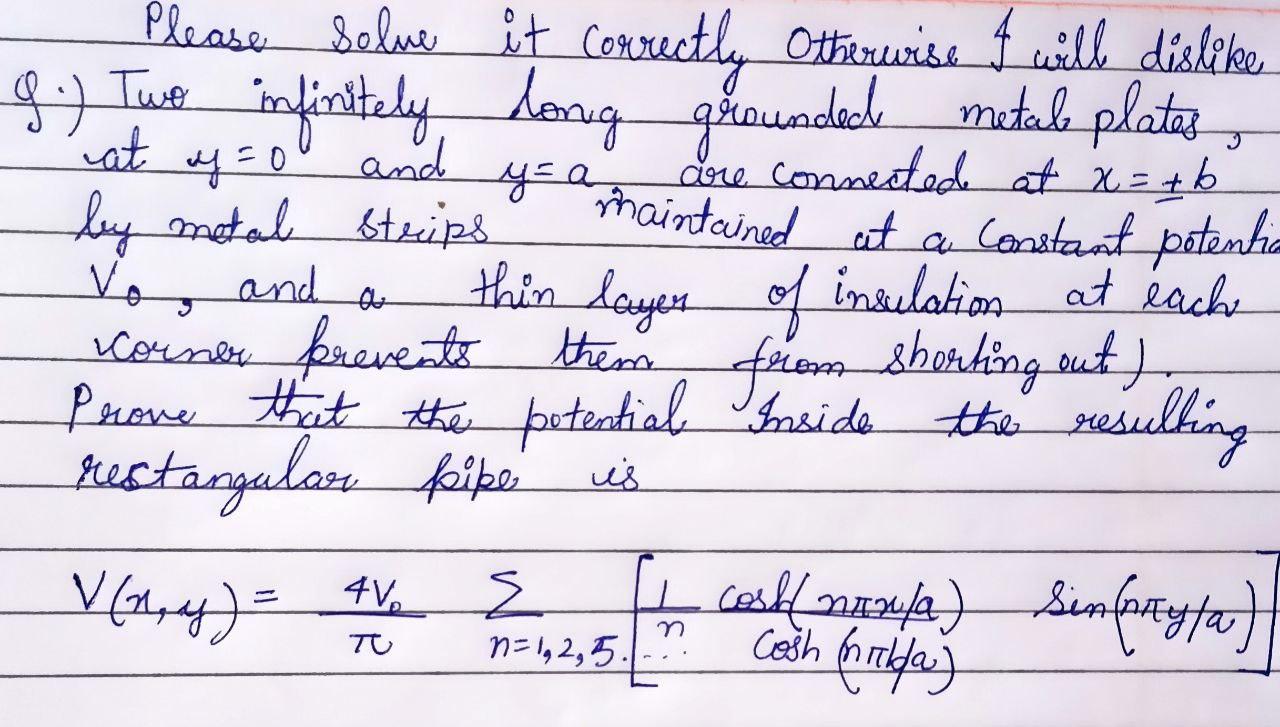 Please Solve it Correctly Otherwise I will dislike
Q.) Two infinitely long grounded metal plates,
at y=0 and y=a are connected at x=±b
by metal strips maintained at a Constant potentia
V₀, and a thin layer of insulation at each
corner prevents them from shorting out).
Prove that the potential Inside the resulting
rectangular pipe is
V(x,y) = 4V₀/π Σ n=1,2,5.... [1/n cosh(nπx/a)/Cosh(nπb/a) Sin(nπy/a)]